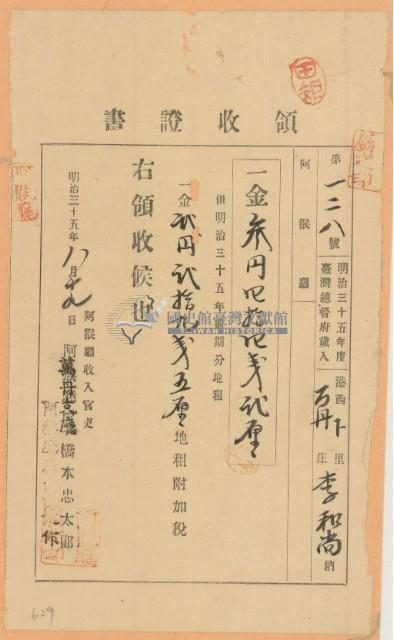 領收證書
第一二八號
明治三十五年度
臺灣總督府歲入
港西下里
万丹庄
李和尚納
阿猴廳
一金叁円四拾四戔貳厘
但明治三十五年前期分地租
一金貳円貳拾戔五厘地租附加稅
右領收候也
明治三十五年八月 日
阿猴廳收入官吏
橋本忠太郎
國史館臺灣文獻館
TAIWAN HISTORICA
629